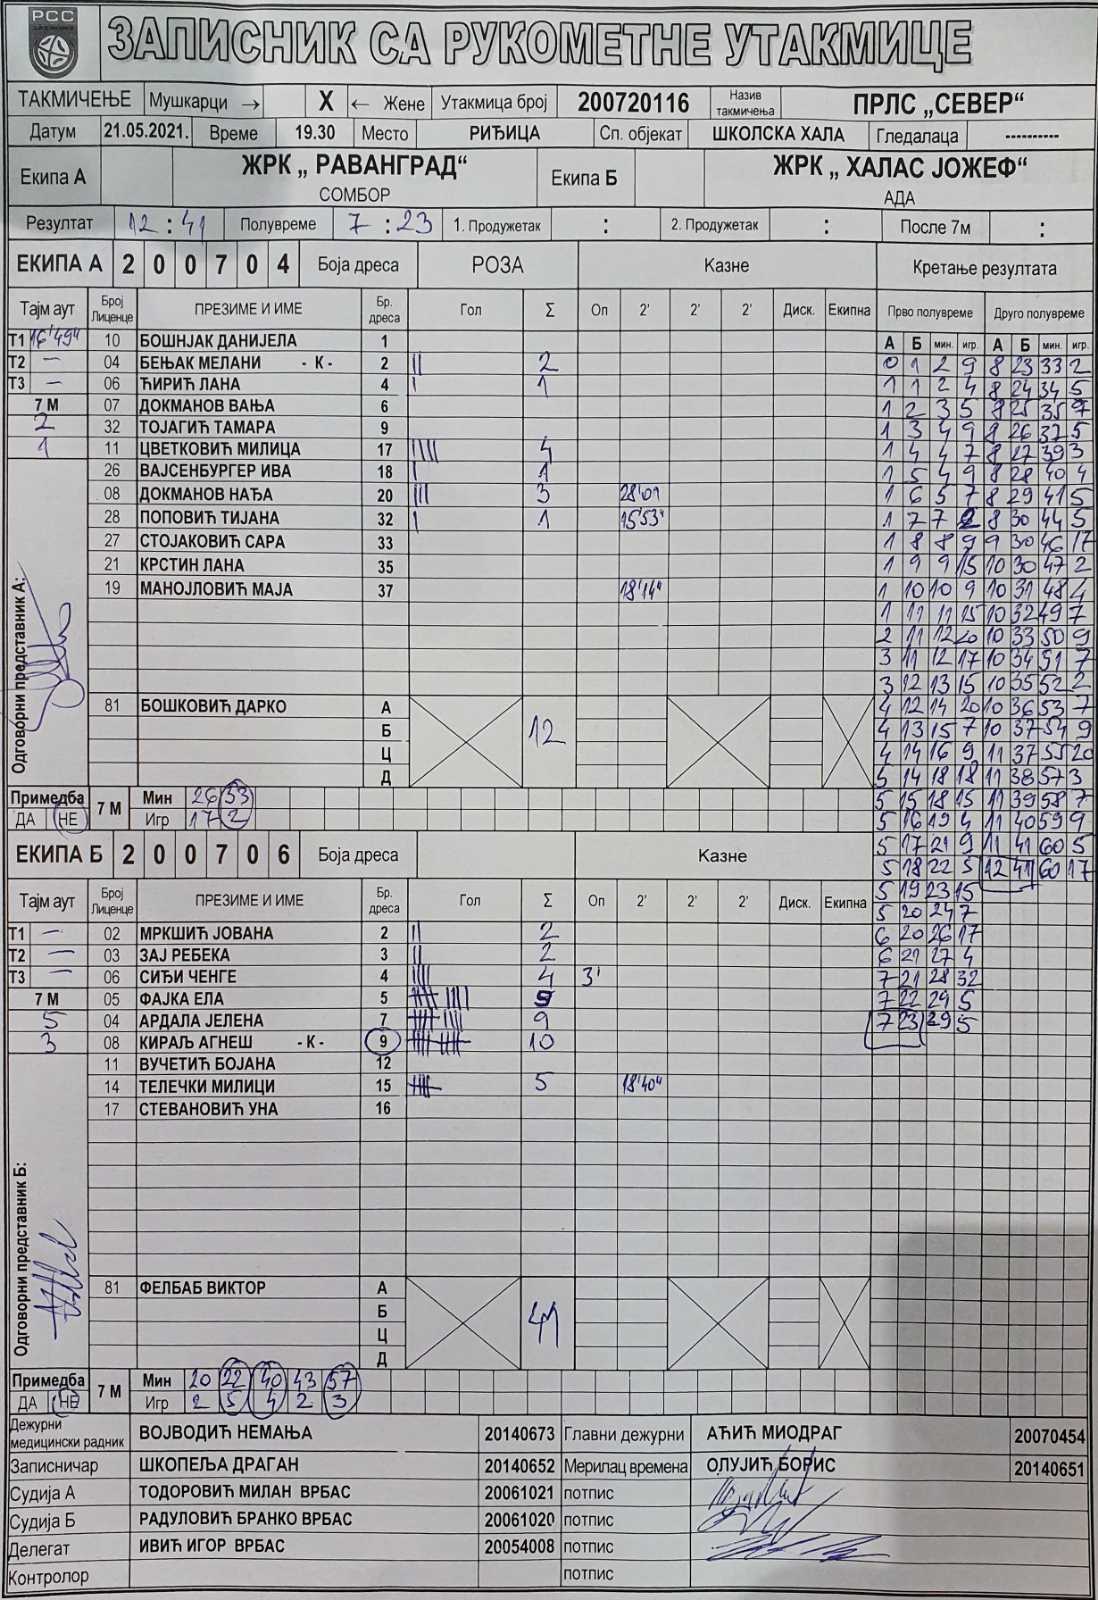 РСС
ЗАПИСНИК СА РУКОМЕТНЕ УТАКМИЦЕ
ТАКМИЧЕЊЕ Мушкарци → X ← Жене Утакмица број 200720116 Назив такмичења ПРЛС „СЕВЕР“
Датум 21.05.2021. Време 19.30 Место РИЂИЦА Сп. објекат ШКОЛСКА ХАЛА Гледалаца ----------
Екипа А ЖРК „ РАВАНГРАД“ Екипа Б ЖРК „ ХАЛАС ЈОЖЕФ“
СОМБОР АДА
Резултат 12 : 41 Полувреме 7 : 23 1. Продужетак : 2. Продужетак : После 7м :
ЕКИПА А 2 0 0 7 0 4 Боја дреса РОЗА Казне Кретање резултата
Тајм аут Број Лиценце ПРЕЗИМЕ И ИМЕ Бр. дреса Гол Σ Оп 2' 2' 2' Диск. Екипна Прво полувреме Друго полувреме
Т1 16'49" 10 БОШЊАК ДАНИЈЕЛА 1 А Б мин. игр. А Б мин. игр.
Т2 — 04 БЕЊАК МЕЛАНИ - К - 2 || 2 0 1 2 9 8 23 33 2
Т3 — 06 ЋИРИЋ ЛАНА 4 | 1 1 1 2 4 8 24 34 5
7 М 07 ДОКМАНОВ ВАЊА 6 1 2 3 5 8 25 35 9
2 32 ТОЈАГИЋ ТАМАРА 9 1 3 4 9 8 26 37 5
1 11 ЦВЕТКОВИЋ МИЛИЦА 17 |||| 4 1 4 4 7 8 27 39 3
26 ВАЈСЕНБУРГЕР ИВА 18 | 1 1 5 4 9 8 28 40 4
08 ДОКМАНОВ НАЂА 20 ||| 3 28'01 1 6 5 7 8 29 41 5
28 ПОПОВИЋ ТИЈАНА 32 | 1 15'53" 1 7 7 2 8 30 44 5
27 СТОЈАКОВИЋ САРА 33 1 8 8 9 9 30 46 17
21 КРСТИН ЛАНА 35 1 9 9 15 10 30 47 2
19 МАНОЈЛОВИЋ МАЈА 37 18'14" 1 10 10 9 10 31 48 4
1 11 11 15 10 32 49 7
2 11 12 20 10 33 50 9
3 11 12 17 10 34 51 7
3 12 13 15 10 35 52 2
81 БОШКОВИЋ ДАРКО А 12 4 12 14 20 10 36 53 7
Б 4 13 15 7 10 37 54 9
Ц 4 14 16 9 11 37 55 20
Д 5 14 18 18 11 38 57 3
Одговорни представник А:
Примедба 7 М Мин 26 33 5 15 18 15 11 39 58 7
ДА НЕ Игр 17 2 5 16 19 4 11 40 59 9
ЕКИПА Б 2 0 0 7 0 6 Боја дреса Казне 5 17 21 9 11 41 60 5
5 18 22 5 12 41 60 17
Тајм аут Број Лиценце ПРЕЗИМЕ И ИМЕ Бр. дреса Гол Σ Оп 2' 2' 2' Диск. Екипна 5 19 23 15
5 20 24 7
Т1 — 02 МРКШИЋ ЈОВАНА 2 || 2 6 20 26 17
Т2 — 03 ЗАЈ РЕБЕКА 3 || 2 6 21 27 4
Т3 — 06 СИЂИ ЧЕНГЕ 4 |||| 4 3' 7 21 28 32
7 М 05 ФАЈКА ЕЛА 5 |||| |||| 9 7 22 29 5
5 04 АРДАЛА ЈЕЛЕНА 7 |||| |||| 9 7 23 29 5
3 08 КИРАЉ АГНЕШ - К - 9 |||| |||| 10
11 ВУЧЕТИЋ БОЈАНА 12
14 ТЕЛЕЧКИ МИЛИЦИ 15 |||| 5 18'40"
17 СТЕВАНОВИЋ УНА 16
Одговорни представник Б:
81 ФЕЛБАБ ВИКТОР А 41
Б
Ц
Д
Примедба 7 М Мин 20 22 40 43 57
ДА НЕ Игр 2 5 4 2 3
Дежурни медицински радник ВОЈВОДИЋ НЕМАЊА 20140673 Главни дежурни АЋИЋ МИОДРАГ 20070454
Записничар ШКОПЕЉА ДРАГАН 20140652 Мерилац времена ОЛУЈИЋ БОРИС 20140651
Судија А ТОДОРОВИЋ МИЛАН ВРБАС 20061021 потпис
Судија Б РАДУЛОВИЋ БРАНКО ВРБАС 20061020 потпис
Делегат ИВИЋ ИГОР ВРБАС 20054008 потпис
Контролор потпис